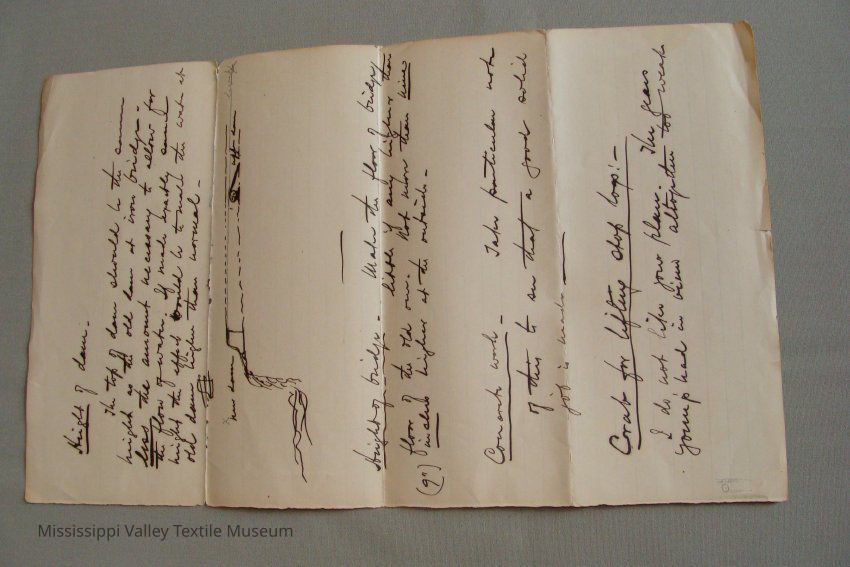 Height of dam.
The top of dam should be the same
height as the old dam at iron bridge -
less the amount necessary to allow for
the flow of water. If made exactly same
height the effect would be to make the water at
old dam higher than normal -
new dam
old dam
Height of bridge - Make the floor of bridge
little if any higher than
floor of the old one. Not more than nine
(9") inches higher at the outside -
Concrete work - Take particular note
of this to see that a good solid
job is made -
Crab for lifting stop logs:-
I do not like your plan. The gears
you had in view altogether too weak
Mississippi Valley Textile Museum